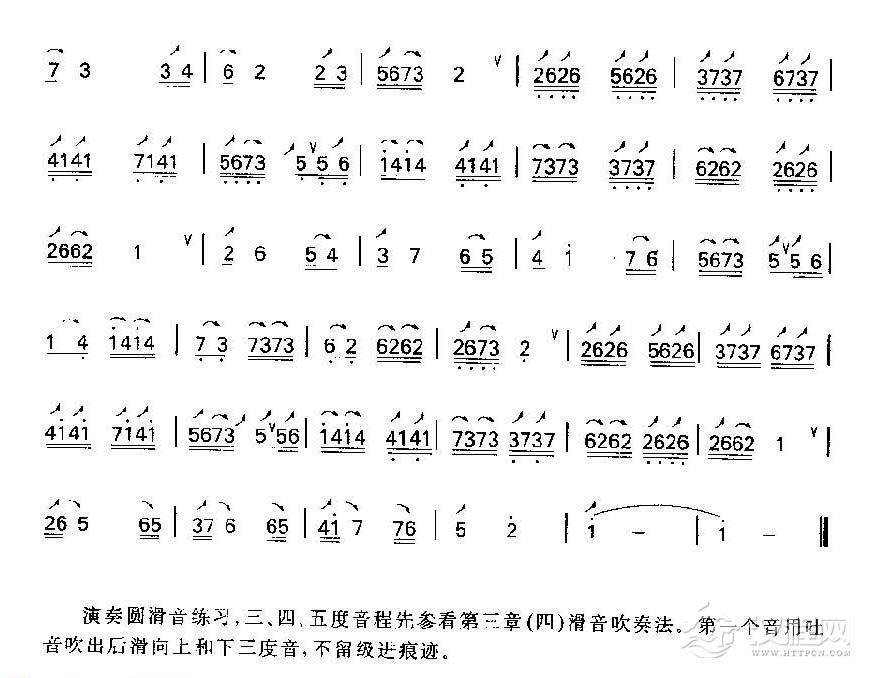 7 3 3 4 | 6 2 2 3 | 5673 2 ∨ | 2626 5626 | 3737 6737 |
4141 7141 | 5673 5 ∨ 5 6 | 1414 4141 | 7373 3737 | 6262 2626 |
2662 1 ∨ | 2 6 5 4 | 3 7 6 5 | 4 i 7 6 | 5673 5 ∨ 5 6 |
1 4 1414 | 7 3 7373 | 6 2 6262 | 2673 2 ∨ | 2626 5626 | 3737 6737 |
4141 7141 | 5673 5 ∨ 56 | 1414 4141 | 7373 3737 | 6262 2626 | 2662 1 ∨ |
26 5 65 | 37 6 65 | 41 7 76 | 5 2 | 1 – | 1 – ‖
演奏圆滑音练习,三、四、五度音程先参看第三章(四)滑音吹奏法。第一个音用吐
音吹出后滑向上和下三度音,不留级进痕迹。
WWW.HTTPCN.COM